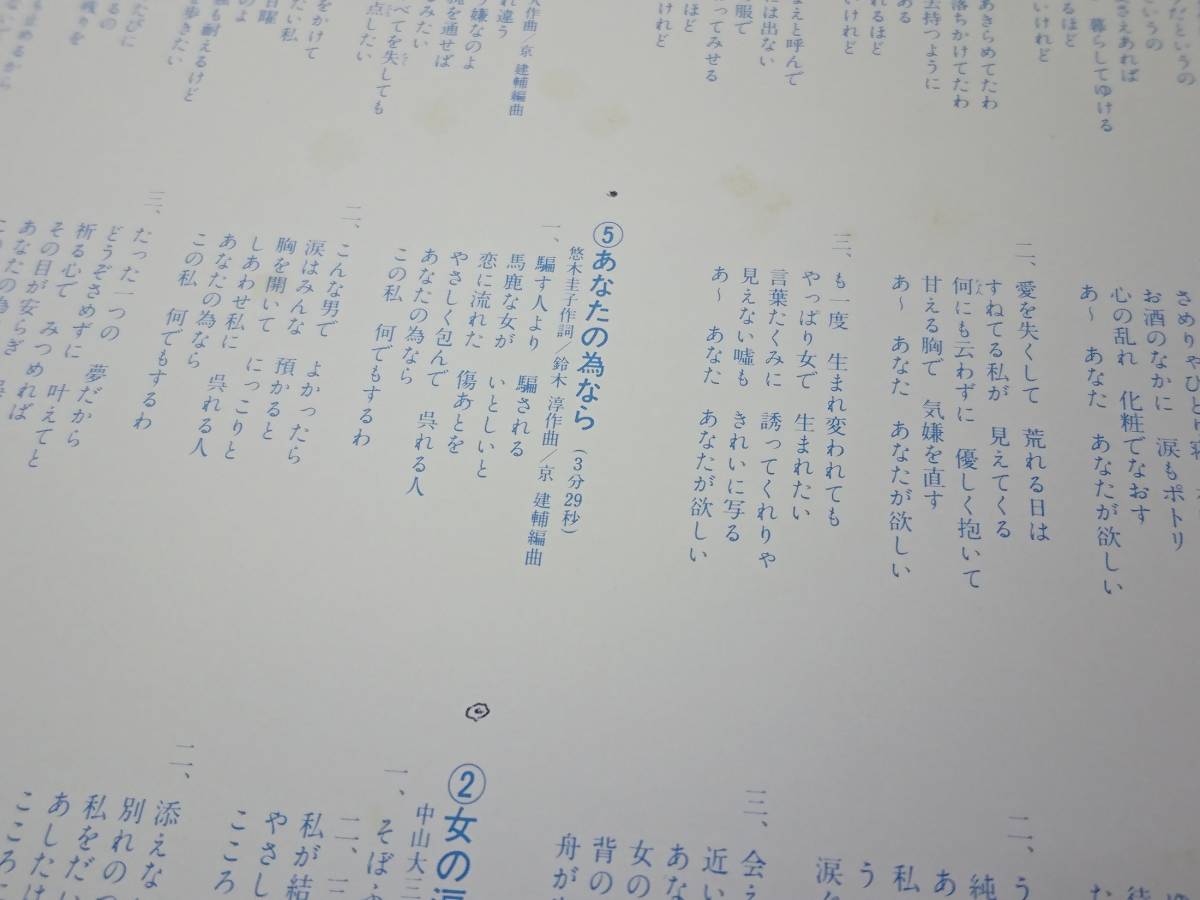 だというの
というの
さえあれば
暮らしてゆける
るほど
いけれど
あきらめてたわ
落ちかけてたわ
去持つように
ある
れるほど
いけれど
まえと呼んで
には出ない
の服で
ってみせる
ほど
けれど
作曲/京 建輔編曲
れ違う
嫌なのよ
を通せば
みたい
べてを失しても
点したい
をかけて
たい私
日曜
のよ
も耐えるけど
歩きたい
お酒のなかに 涙もポトリ
心の乱れ 化粧でなおす
あ〜 あなた あなたが欲しい
二、愛を失くして 荒れる日は
すねてる私が 見えてくる
何にも云わずに 優しく抱いて
甘える胸で 気嫌を直す
あ〜 あなた あなたが欲しい
三、も一度 生まれ変われても
やっぱり女で 生まれたい
言葉たくみに 誘ってくれりゃ
見えない嘘も きれいに写る
あ〜 あなた あなたが欲しい
⑤あなたの為なら (3分29秒)
悠木圭子作詞/鈴木 淳作曲/京 建輔編曲
一、騙す人より 騙される
馬鹿な女が いとしいと
恋に流れた 傷あとを
やさしく包んで 呉れる人
あなたの為なら
この私 何でもするわ
二、こんな男で よかったら
涙はみんな 預かると
胸を開いて にっこりと
しあわせ私に 呉れる人
あなたの為なら
この私 何でもするわ
三、たった一つの 夢だから
どうぞさめずに 叶えてと
祈る心で みつめれば
その目が安らぎ
あなたの為
②女の
中山大三
一、そぼ
二、三
私が結
やさし
こころ
二、添えな
別れのつ
私をだい
あしたは
こころ
三、会え
近い
あな
女の
背の
舟が
二、う
純
あ
私
う
涙